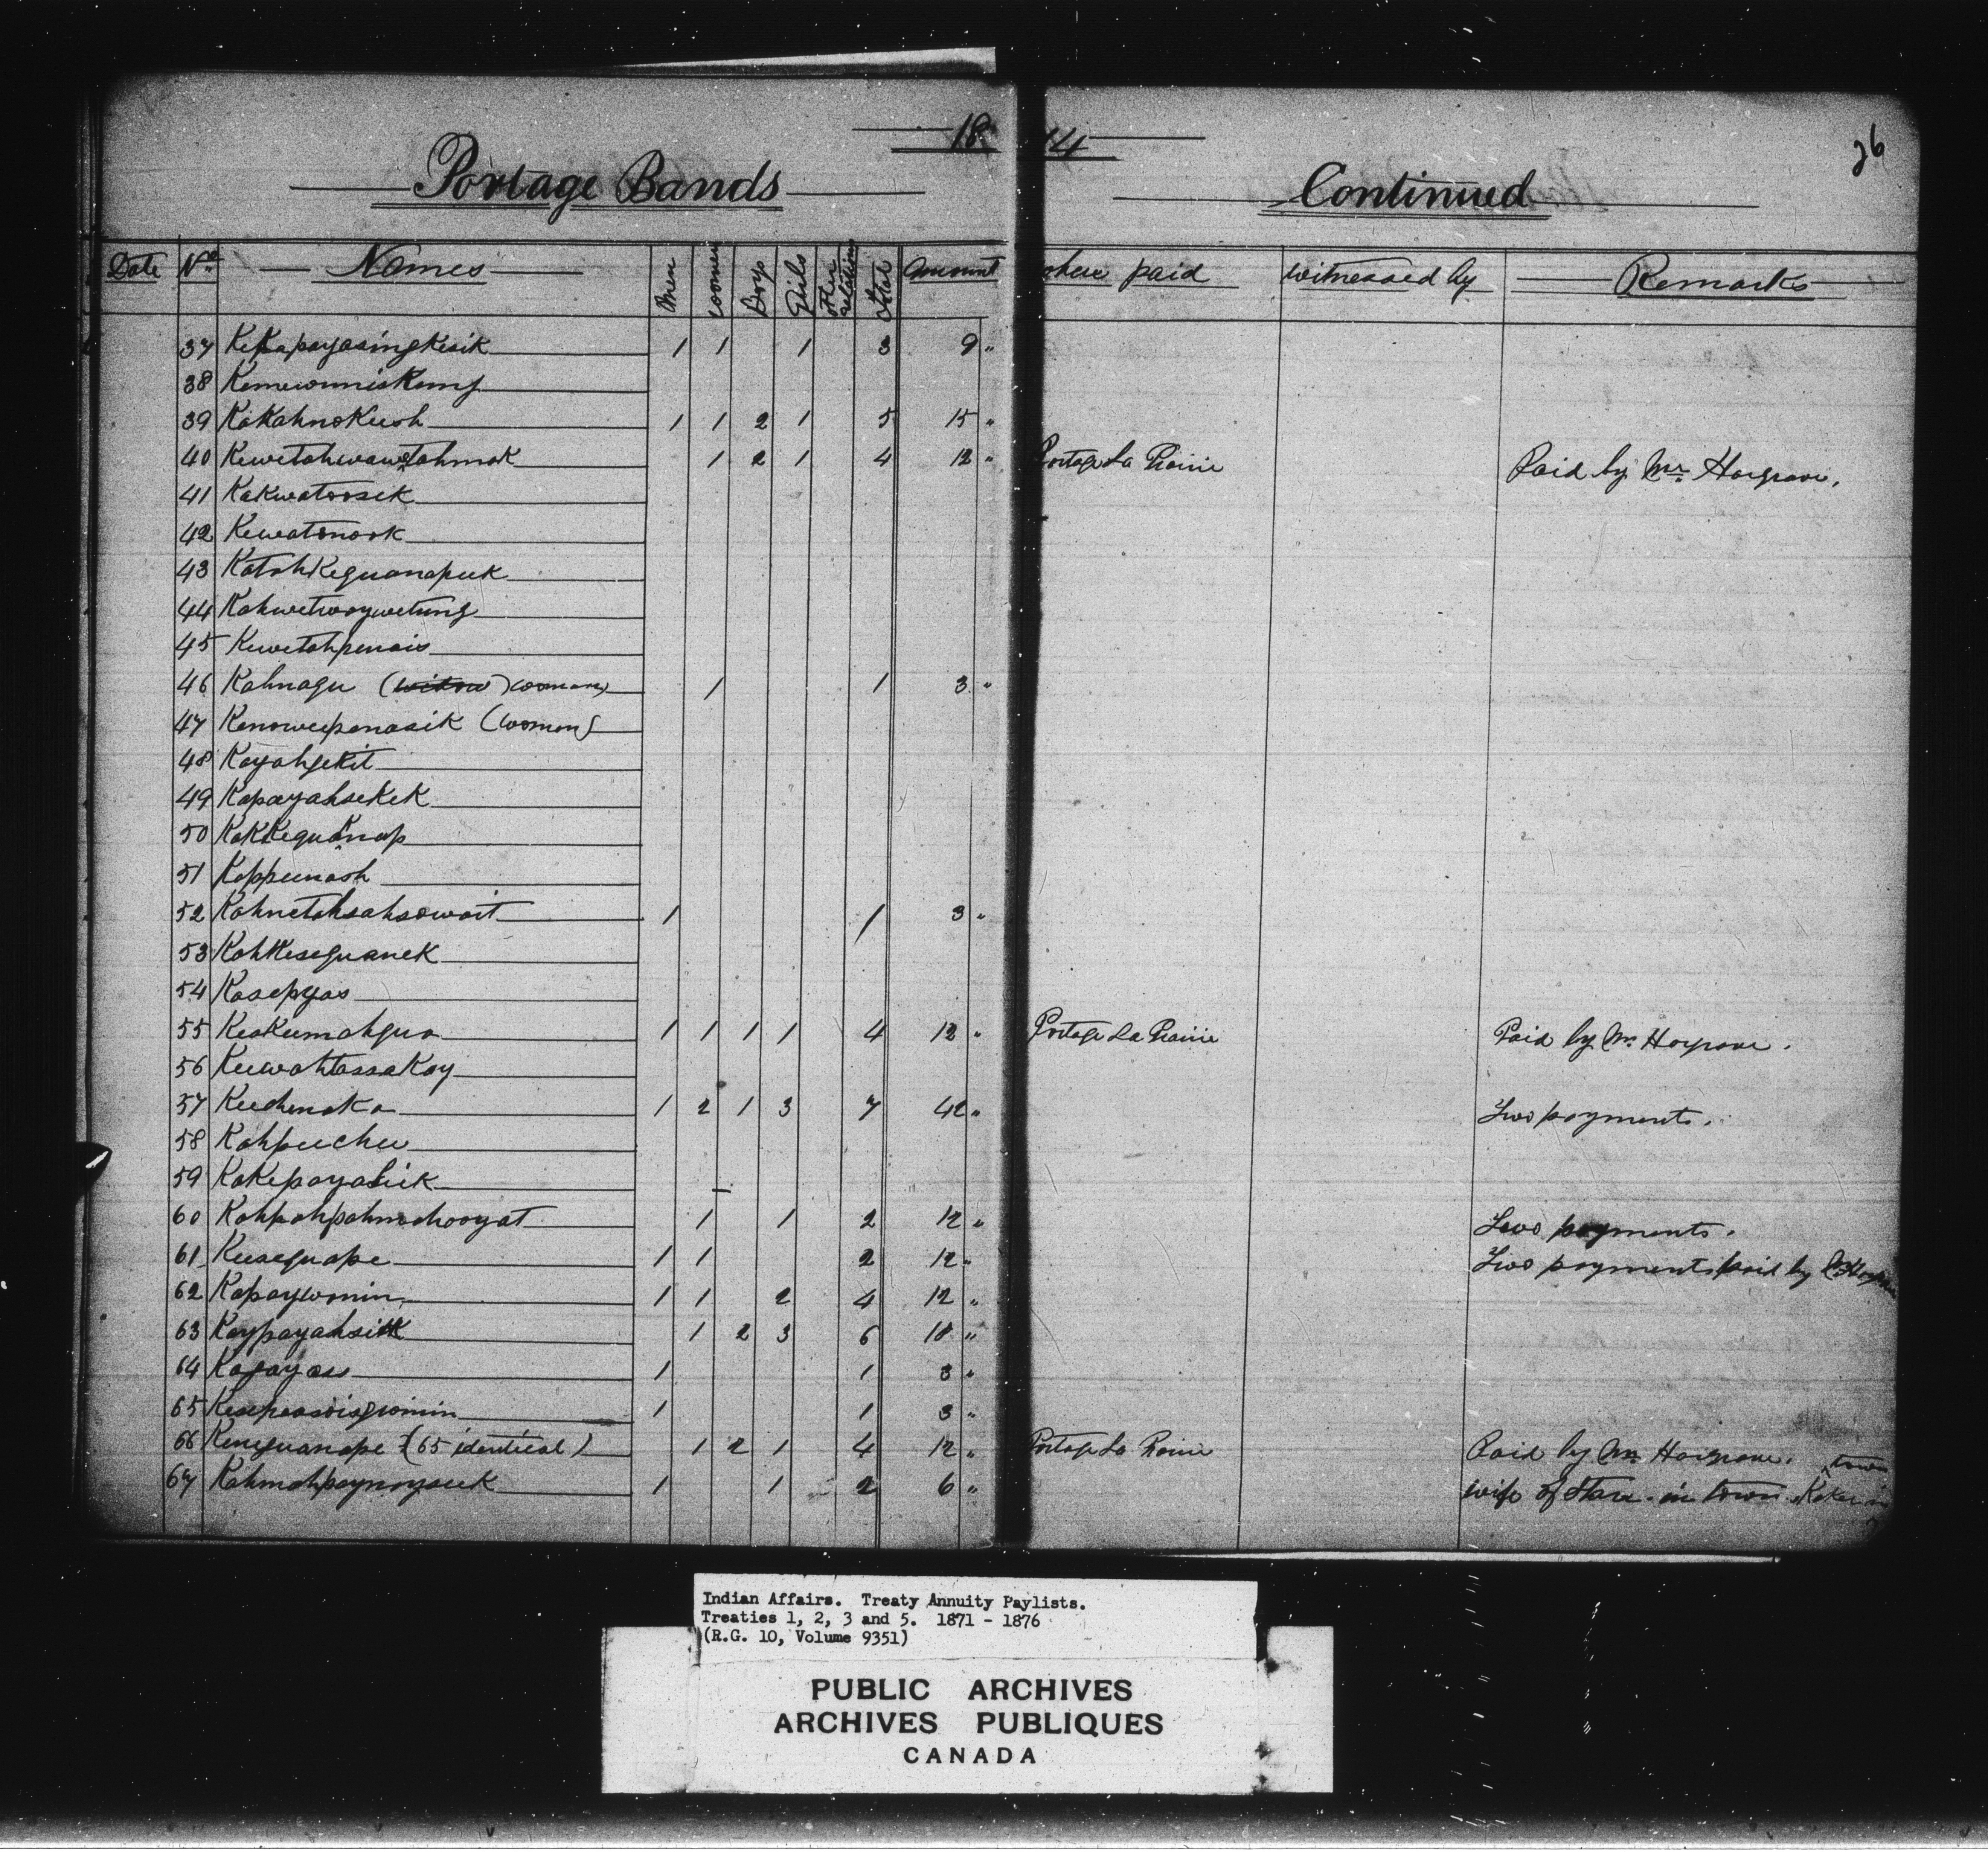 18 74
26
Portage Bands Continued
Date No Names Men women Boys Girls other relations Total Amount where paid witnessed by Remarks
37 Kekapayasingkesik 1 1 1 3 9 "
38 Kemewinniskung
39 Kakahnokeesh 1 1 2 1 5 15 "
40 Kewetahwawetahmok 1 2 1 4 12 " Portage La Prairie Paid by Mr Hargrave.
41 Kakwatoosek
42 Kewatonook
43 Katahkeguanapeek
44 Kahwetwaywetung
45 Kewetahpenais
46 Kahnagu (widow) woman) 1 1 3 "
47 Kenoweepenasik (woman)
48 Kayahgekit
49 Kapayahsekek
50 Kakkeguanap
51 Kappeenash
52 Kahnetahsahsowait 1 1 3 "
53 Kahkeseguanek
54 Kasepyas
55 Keakeemahgua 1 1 1 1 4 12 " Portage La Prairie Paid by Mr Hargrave.
56 Keewahtassakay
57 Keechenaka 1 2 1 3 7 42 " Two payments.
58 Kahpeechee
59 Kakepayasik
60 Kahpahpahmachooyat 1 1 2 12 " Two payments.
61 Keeseguape 1 1 2 12 " Two payments paid by
62 Kapaywonin 1 1 2 4 12 "
63 Kaypayahsik 1 2 3 6 18 "
64 Kagayass 1 1 3 "
65 1 1 3 "
66 Keneguanape (65 identical) 1 2 1 4 12 " Portage La Prairie Paid by Mr Hargrave. town
67 1 1 2 6 " wife of in town
Indian Affairs. Treaty Annuity Paylists.
Treaties 1, 2, 3 and 5. 1871 - 1876
(R.G. 10, Volume 9351)
PUBLIC ARCHIVES
ARCHIVES PUBLIQUES
CANADA